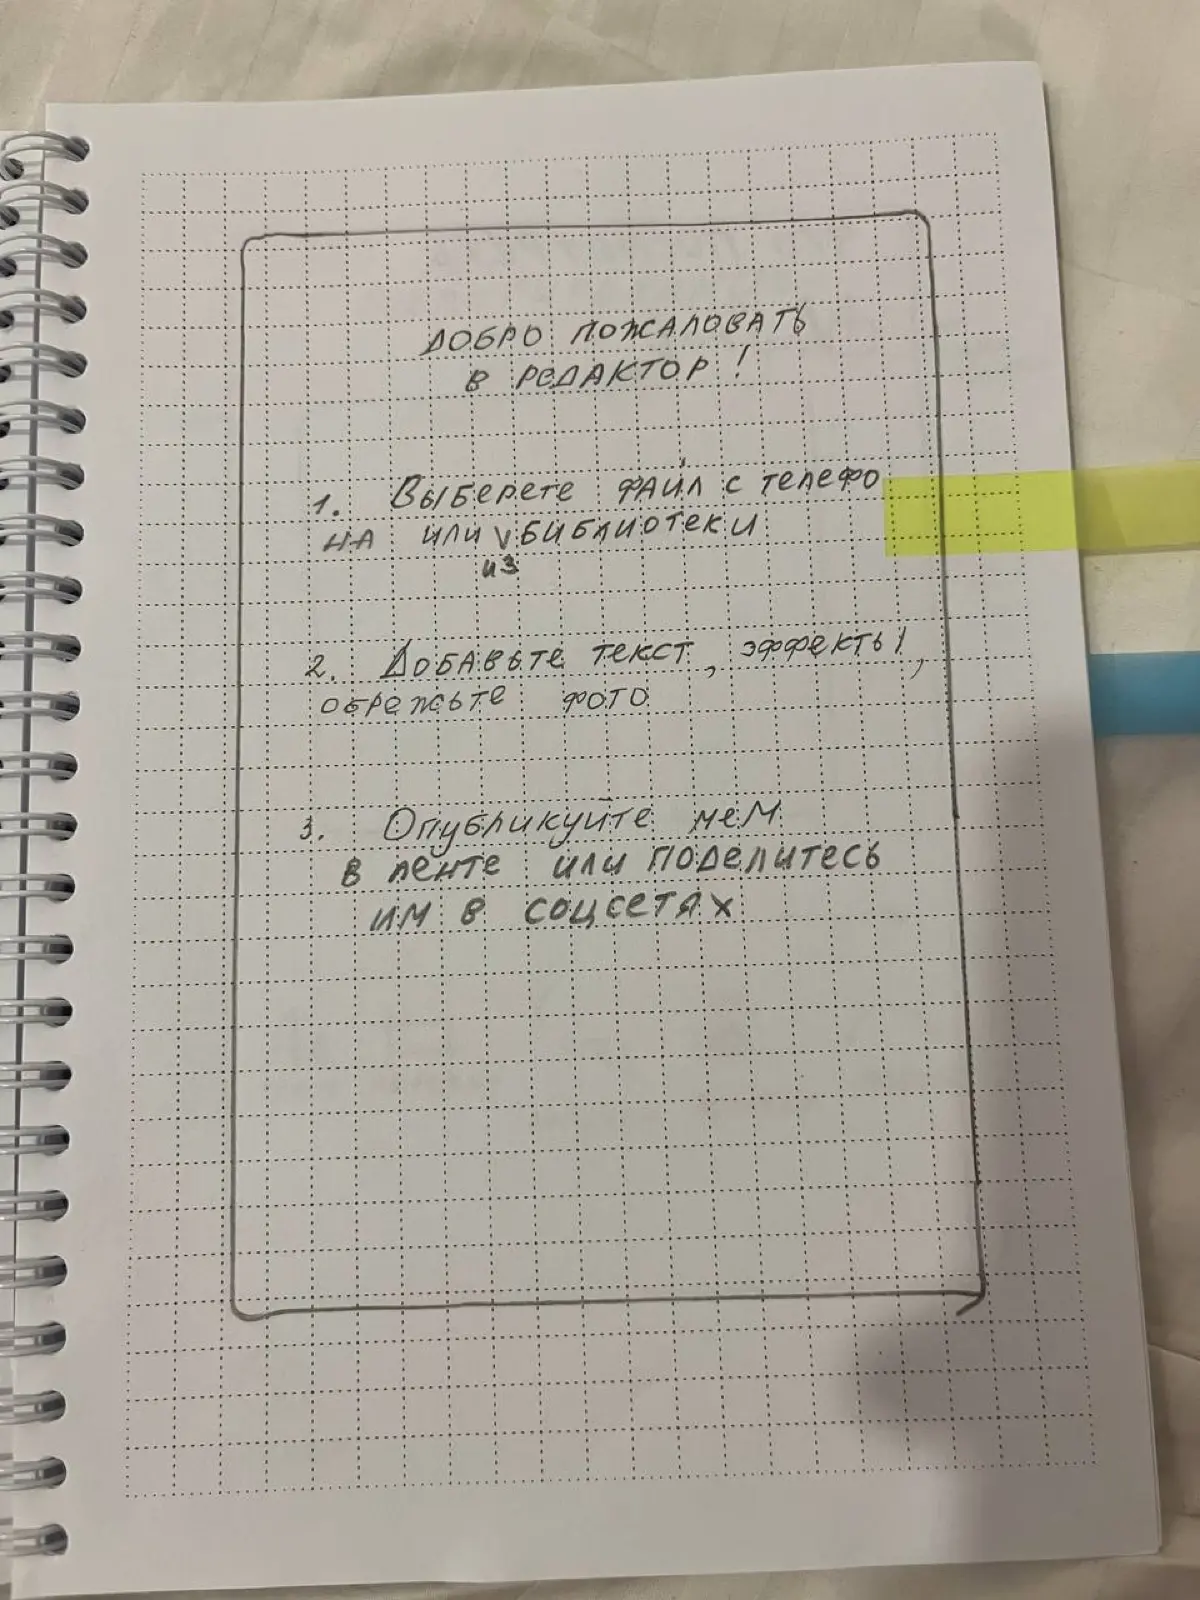 ДОБРО ПОЖАЛОВАТЬ
В РЕДАКТОР!
1. Выберете файл с телефо
на или из библиотеки
2. Добавьте текст, эффекты,
обрежьте фото
3. Опубликуйте мем
в ленте или поделитесь
им в соцсетях